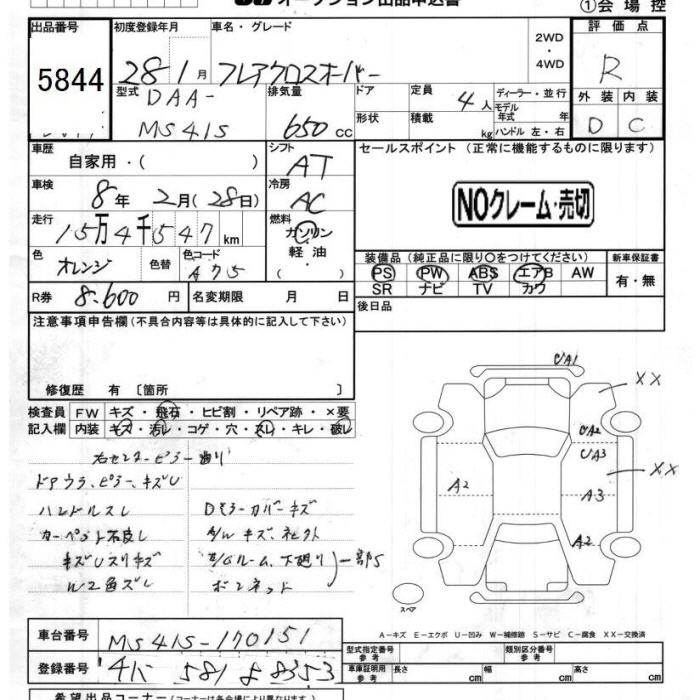 オークション出品申込書
①会場控
出品番号 初度登録年月 車名・グレード 評価点
5844 28 1月 フレアクロスオーバー 2WD・4WD R
型式 排気量 ドア 定員 ディーラー・並行 外装 内装
DAA-
MS41S 650cc 形状 4人 積載 kg モデル年式 年 ハンドル 左・右 D C
車歴 シフト セールスポイント (正常に機能するものに限ります)
自家用・( ) AT
車検 冷房
8年 2月(28日) AC NOクレーム・売切
走行 燃料
15万4千547km ガソリン・軽油・( )
色 色替 色コード 装備品(純正品に限り〇をつけてください) 新車保証書
オレンジ PS PW ABS エアB AW 有・無
SR ナビ TV カワ
R券 8.600円 名変期限 月 日 後日品
注意事項申告欄(不具合内容等は具体的に記入して下さい)
修復歴 有 〔箇所 〕
検査員 FW キズ・飛石・ヒビ割・リペア跡・×要
記入欄 内装 キズ・汚レ・コゲ・穴・スレ・キレ・破レ
右センターピラー曲り
ドアウラ、ピラー、キズU
ハンドルスレ Dミラーカバーキズ
カーペット不良し A/Wキズ、
キズUスリキズ 下廻り 一部S
ボンネット
UA1
XX
UA2
UA3
XX
A2
A3
A2
スペア
A-キズ E-エクボ U-凹み W-補修跡 S-サビ C-腐食 XX-交換済
車台番号 MS41S-170151
型式指定番号 参考 類別区分番号 参考
登録番号 581 8353
車庫証明用 参考 長さ cm 幅 cm 高さ cm
希望出品コーナー(コーナーは各会場により異なります)